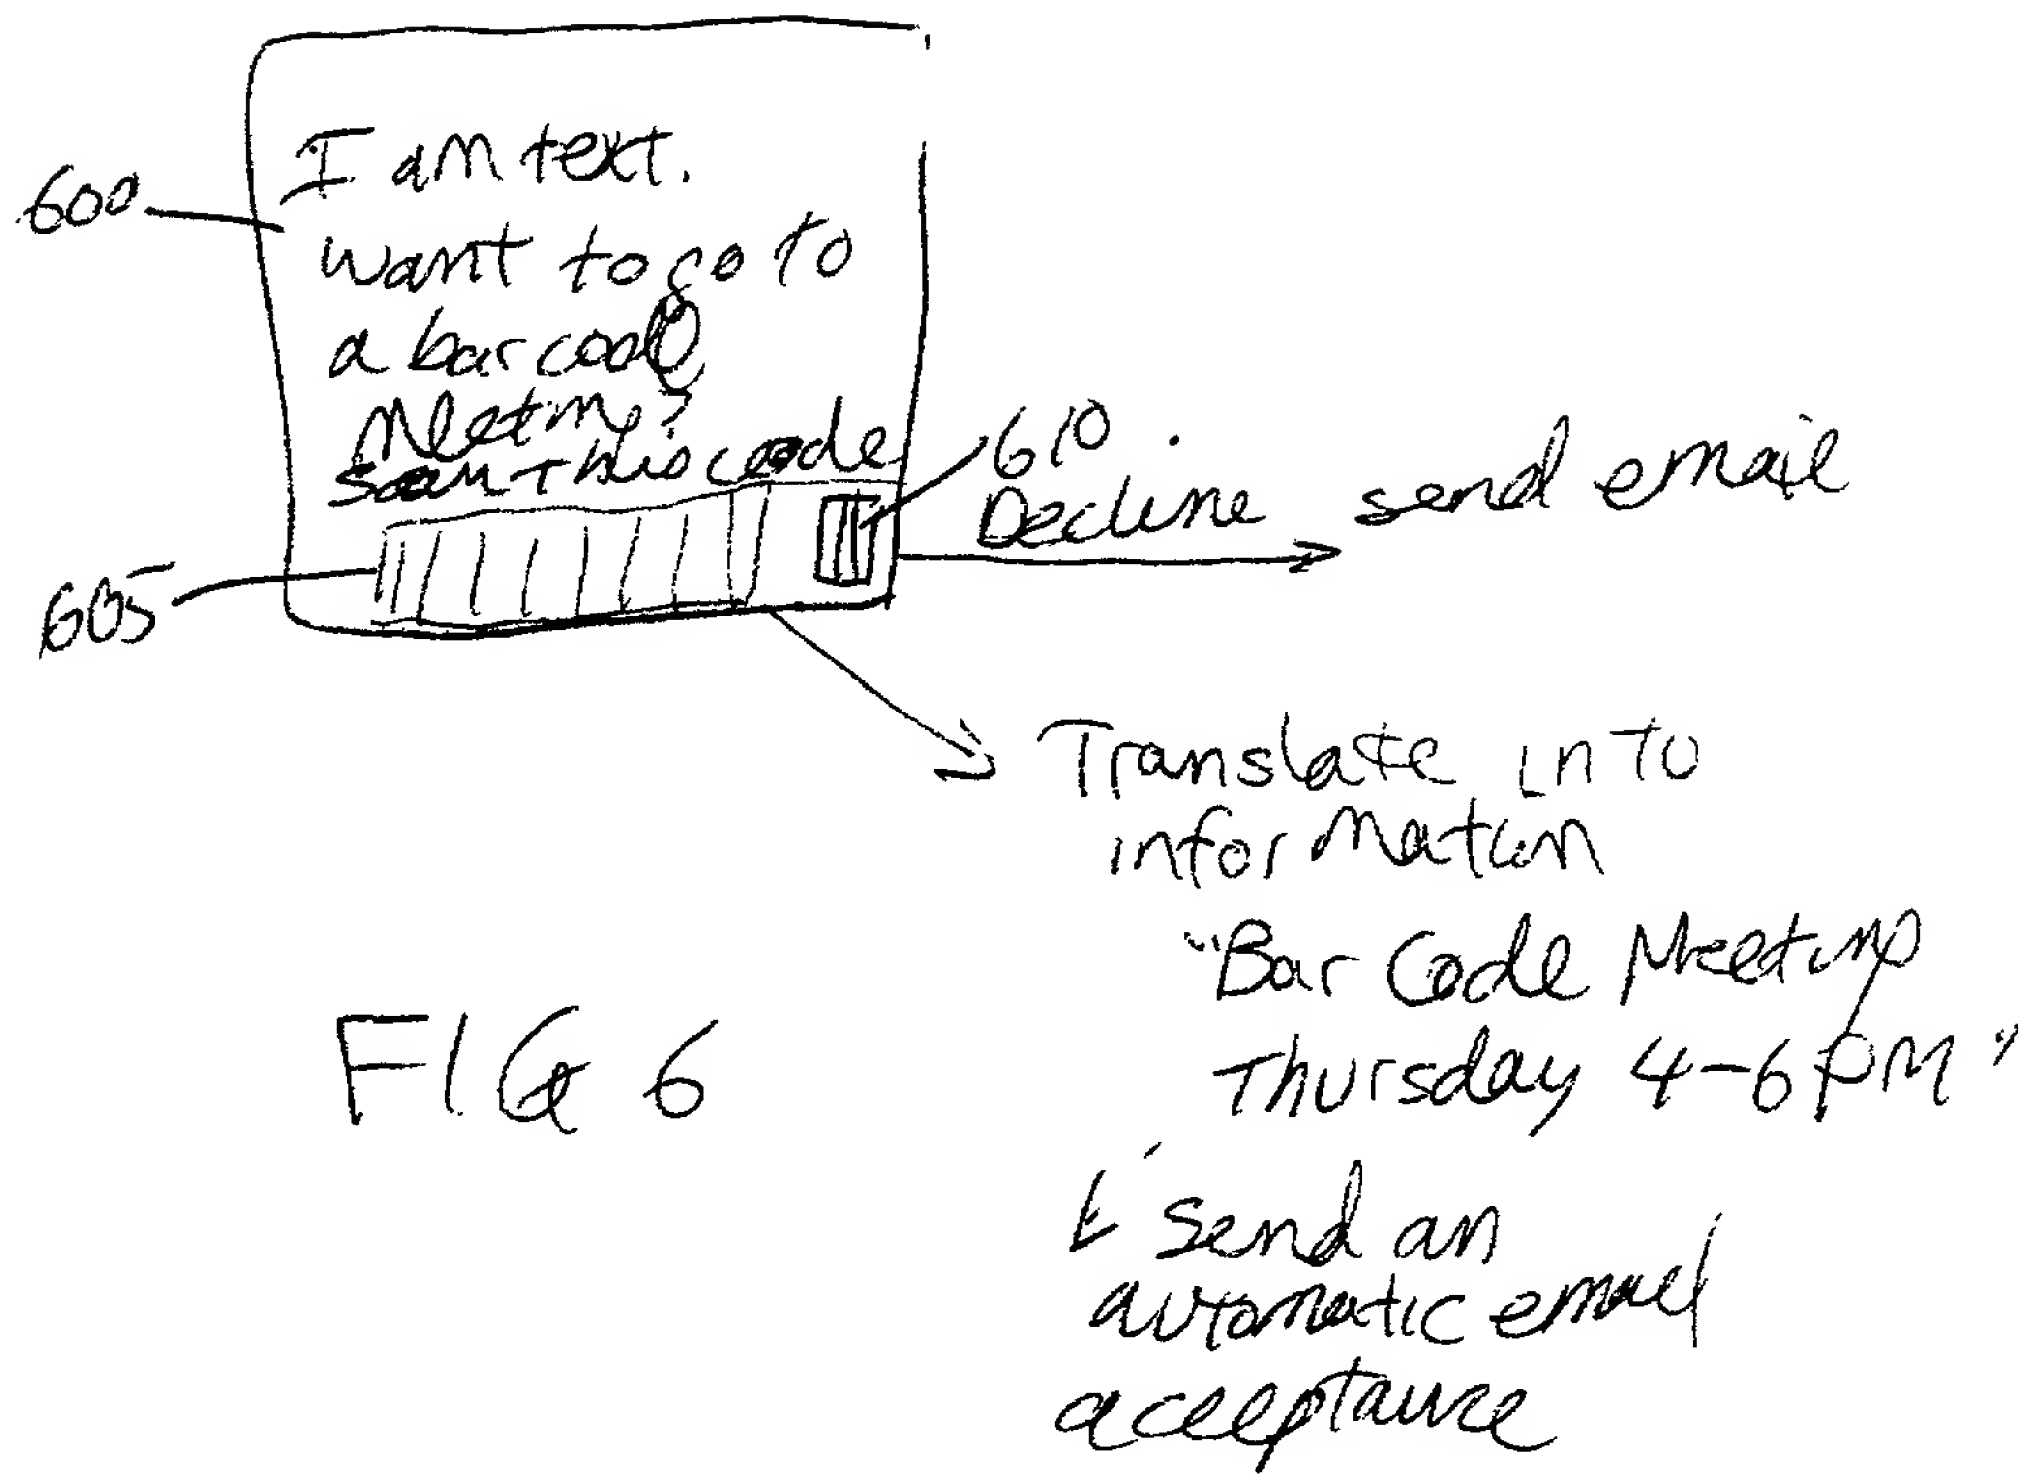 I am text.
want to go to
a bar code
Meeting?
scan this code
600
605
610
Decline
send email
Translate into
information
"Bar Code Meeting
Thursday 4-6 PM"
send an
automatic email
acceptance
FIG 6